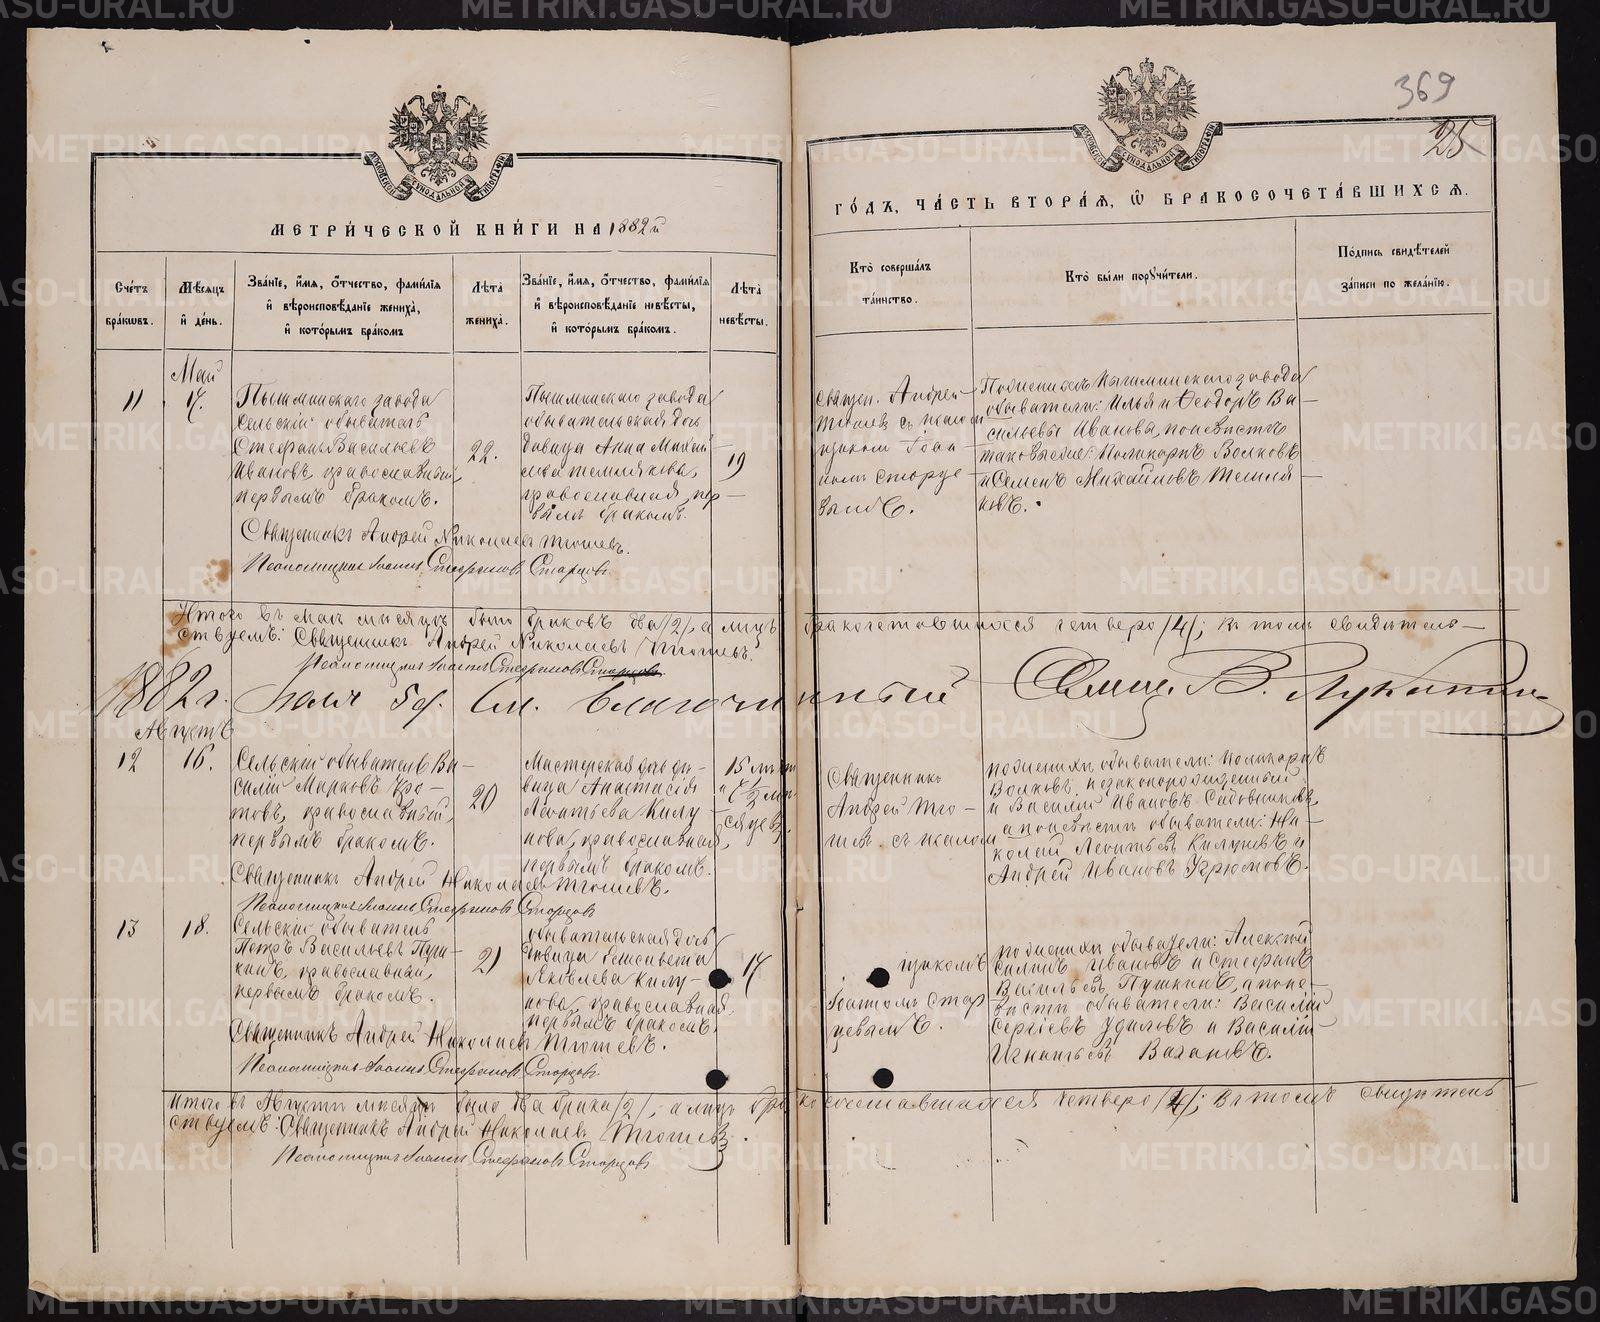 369
25
МЕТРИ́ЧЕСКОЙ КНИ́ГИ НА 1882й
ГО́ДЪ, ЧА́СТЬ ВТОРА́Ѧ, Ѿ БРАКОСОЧЕТА́ВШИХСѦ.
Сче́тъ бра́кѡвъ.
Мѣ́сяцъ и҆ де́нь.
Зва́нїе, и҆́мѧ, ѻ҆́тчество, фами́лїѧ и҆ вѣроисповѣ́данїе жениха̀, и҆ кото́рымъ бра́комъ
Лѣ́та жениха̀.
Зва́нїе, и҆́мѧ, ѻ҆́тчество, фами́лїѧ и҆ вѣроисповѣ́данїе невѣ́сты, и҆ кото́рымъ бра́комъ.
Лѣ́та невѣ́сты.
Кто̀ соверша́лъ та́инство.
Кто̀ бы́ли порꙋчи́тели.
По́дпись свидѣ́телей за́писи по жела́нїю.
Май
11
17.
Пышминскаго завода
Сельскій обыватель
Стефанъ Васильевъ
Ивановъ, православный,
первымъ бракомъ.
22.
Пышминскаго завода
обывательская дочь
девица Анна Михай
лова
православная, пер—
вымъ бракомъ.
19
Священ. Андрей
Тюшевъ с псалом
щикомъ Іоан
номъ Старце
вымъ.
По женихѣ Пышминскаго завода
обыватели: Илья и Ѳеодоръ Ва—
сильевы Ивановы, по невѣстѣ
таковые же: Поликарпъ Волковъ
и Семенъ Михайловъ
Священникъ Андрей Николаевъ Тюшевъ.
Псаломщикъ Іоаннъ Стефановъ Старцовъ
Итого въ маѣ мѣсяцѣ было браковъ два /2/, а лицъ бракосочетавшихся четверо /4/; въ томъ свидѣтель—
ствуемъ: Священникъ Андрей Николаевъ Тюшевъ.
Псаломщикъ Іоаннъ Стефановъ Старцовъ
1882 г. Іюля 5 д. См. Благочинный Свящ. В. Лукинъ
Августъ
12
16.
Сельскій обыватель Ва—
силій Марковъ
православный,
первымъ бракомъ.
20
Мастерская дочь дѣ—
вица Анастасія
Леонтьева Килу
нова, православная,
первымъ бракомъ.
15 лѣтъ
сяцевъ.
Священникъ
Андрей Тю—
шевъ съ псалом
по женихѣ обыватели: Поликарпъ
Волковъ, незаконорожденный
и Василій Ивановъ Садовниковъ,
а по невѣстѣ обыватели: Ни—
колай Леонтьевъ и
Андрей Ивановъ Угрюмовъ.
Священникъ Андрей Николаевъ Тюшевъ.
Псаломщикъ Іоаннъ Стефановъ Старцовъ
13
18.
Сельскій обыватель
Петръ Васильевъ Пуш—
кинъ, православный,
первымъ бракомъ.
21
обывательская дочь
дѣвица Елисавета
Яковлева Килу—
нова, православная,
первымъ бракомъ.
17
щикомъ
Іоанномъ Стар
цевымъ.
по женихѣ обыватели: Алексѣй
Ивановъ и Стефанъ
Васильевъ Пушкинъ, а по не—
вѣстѣ обыватели: Василій
Сергіевъ Удиловъ и Василій
Игнатьевъ
Священникъ Андрей Николаевъ Тюшевъ.
Псаломщикъ Іоаннъ Стефановъ Старцовъ
Итого въ Августѣ мѣсяцѣ было два брака /2/, а лицъ бракосочетавшихся четверо /4/; въ томъ свидѣтель
ствуемъ: Священникъ Андрей Николаевъ Тюшевъ.
Псаломщикъ Іоаннъ Стефановъ Старцовъ
METRIKI.GASO-URAL.RU